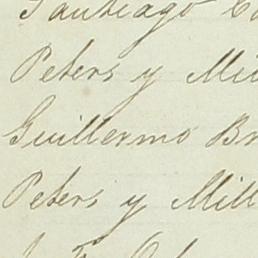 Santiago Co
Peters y Mil
Guillermo Br
Peters y Mill